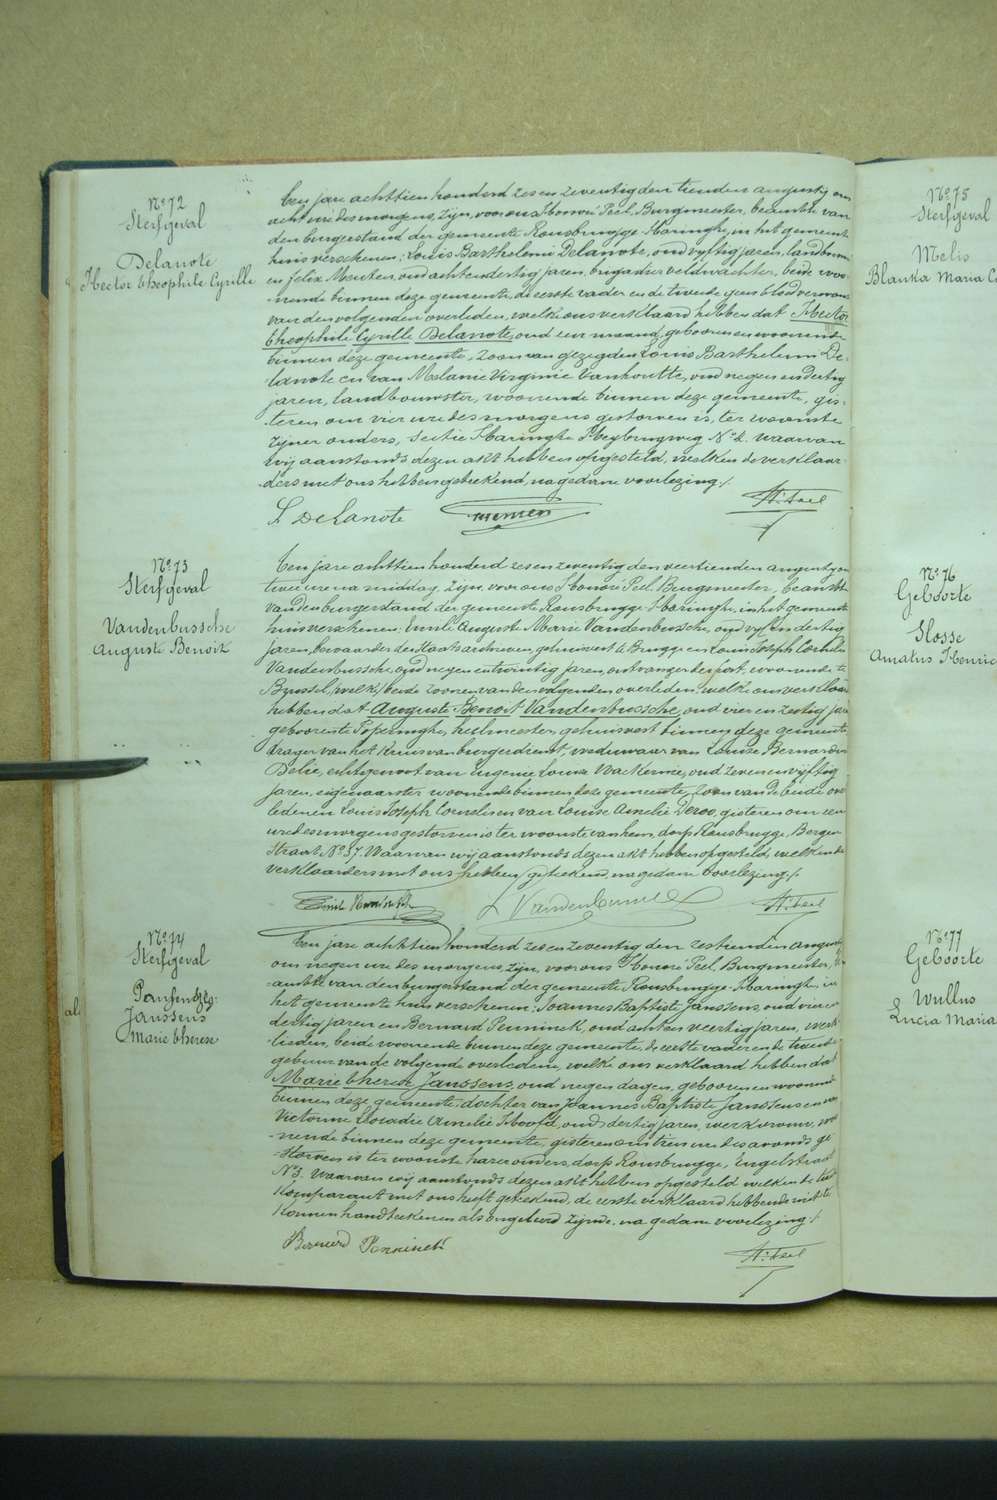 Nº 72
Sterfgeval
Delanote
Hector Theophile Cyrille
Een jare achttien honderd zes en zeventig den tienden augusty om
acht ure des morgens, zijn, voor ons Honoré Peel, Burgmeester, beambte van
den burgerstand der gemeente Rousbrugge-Haringhe, in het gemeente
huis verschenen: Louis Bartholemi Delanote, oud vyftig jaren, landbouwer
en felix Meuten, oud achtendertig jaren, brigadier veldwachter, beide woo-
-nende binnen deze gemeente, de eerste vader en de tweede geen bloedverwant
van den volgenden overleden, welke ons verklaard hebben dat Hector
Theophile Cyrille Delanote, oud een maand, geboren en woonende
binnen deze gemeente, zoon van gezegden Louis Barthelemi De-
-lanote en van Melanie Virginie Vanhoutte, oud negen en dertig
jaren, landbouwster, woonende binnen deze gemeente, gis-
-teren om vier ure des morgens gestorven is, ter woonste
zijner ouders, sectie Haringhe Heybrugweg Nº 2. waarvan
wij aanstonds dezen akt hebben opgesteld, welken de verklaar-
-ders met ons hebben geteekend, na gedane voorlezing./.
L DeLanote
H. Peel
Nº 73
Sterfgeval
Vandenbussche
Auguste Benoit
Een jare achttien honderd zes en zeventig den veertienden augusty om
twee ure na middag, zijn voor ons Honoré Peel, Burgmeester, beambte
van den burgerstand der gemeente Rousbrugge-Haringhe, in het gemeente
huis verschenen: Emile Auguste Marie Vandenbussche, oud vyf en dertig
jaren, bewaarder der Staats archieven, gehuisvest te Brugge en Louis Joseph Cornelis
Vandenbussche, oud negen en twintig jaren, ontvanger der post, woonende te
Brussel, welk beide zoonen van den volgenden overleden, welke ons verklaard
hebben dat Auguste Benoit Vandenbussche, oud vier en zestig jaren
geboren te Poperinghe, heelmeester, gehuisvest binnen deze gemeente
drager van het kruis van burgerdienst, weduwaar van Louise Bernardine
Delie, echtgenoot van Eugenie Louise Wackernie, oud zeven en vyftig
jaren, eigenaarster, woonende binnen deze gemeente, zoon van de beide over
ledenen Louis Joseph Cornelis en van Louise Amelie Deroo, gisteren om een
ure des morgens gestorven is ter woonste van hem, dorp Rousbrugge, Bergen
Straat, Nº 37. Waarvan wij aanstonds dezen akt hebben opgesteld, welken de
verklaarders met ons hebben geteekend, na gedane voorlezing./.
H. Peel
Nº 74
Sterfgeval
Janssens
Marie Therese
Een jare achttien honderd zes en zeventig den zestienden augusty
om negen ure des morgens, zijn, voor ons Honoré Peel, Burgmeester, be
ambte van den burgerstand der gemeente Rousbrugge-Haringhe, in
het gemeente huis verschenen: Joannes Baptiste Janssens, oud vier en
dertig jaren en Bernard Penninck, oud acht en veertig jaren, werk
-lieden, beide woonende binnen deze gemeente, de eerste vader en de tweede
gebuur van de volgende overledene, welke ons verklaard hebben dat
Marie Therese Janssens, oud negen dagen, geboren en woonende
binnen deze gemeente, dochter van Joannes Baptiste Janssens en van
Victorine Leocadie Amelie Hoofd, oud dertig jaren, werkvrouw, woo
-nende binnen deze gemeente, gisteren om tien ure des avonds ge
-storven is ter woonste harer ouders, dorp Rousbrugge, Engelstraat
Nº 3. Waarvan wij aanstonds dezen akt hebben opgesteld welken de tweede
Komparant met ons heeft geteekend, de eerste verklaard hebbende niet te
Konnen handteekenen als ongeleerd zijnde, na gedane voorlezing./.
Bernard Penninck
H. Peel
als
Nº 75
Sterfgeval
Melis
Blanka Maria C
Nº 76
Geboorte
Hosse
Amatus Henric
Nº 77
Geboorte
Wullus
Lucia Maria